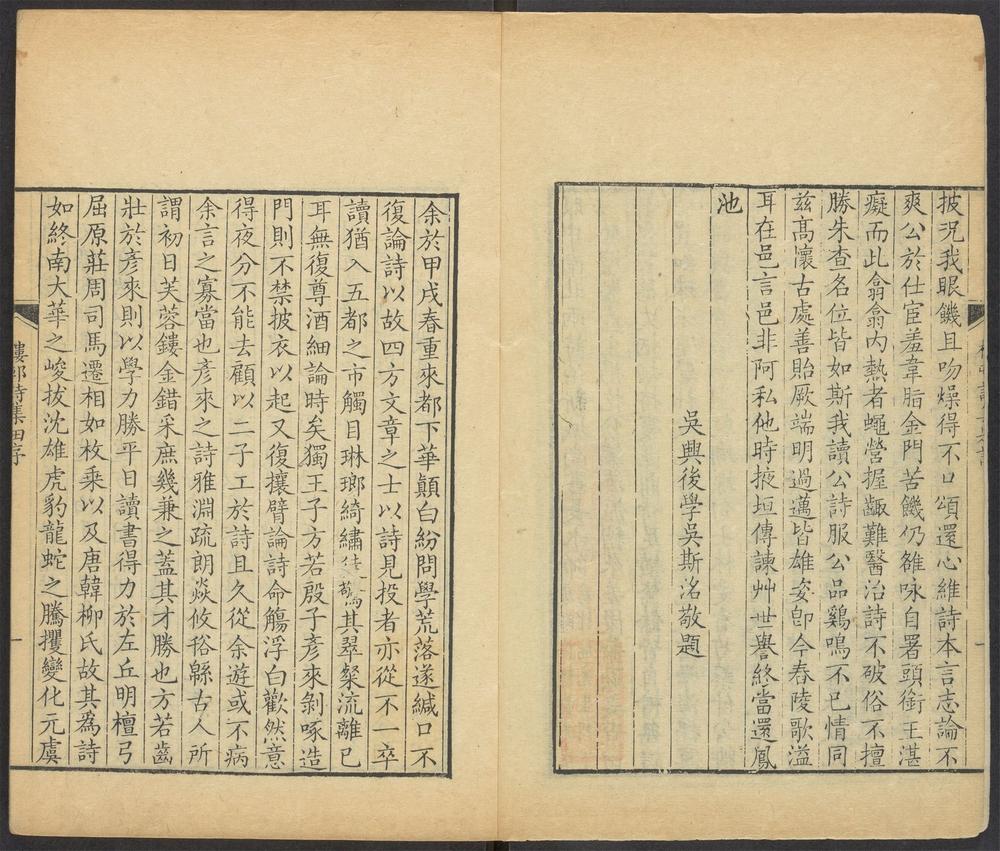 披况我眼饑且吻燥得不口頌還心維詩本言志論不
爽公於仕宦羞韋脂金門苦饑仍雒咏自署頭銜王湛
癡而此翕翕内熱者蠅營握齱難醫治詩不破俗不擅
勝朱查名位皆如斯我讀公詩服公品鷄鳴不已情同
兹高懷古處善貽厥端明過邁皆雄姿卽今舂陵歌溢
耳在邑言邑非阿私他時掖垣傳諫艸世譽終當還鳳
池
吳興後學吳斯洺敬題
余於甲戌春重來都下華顛白紛問學荒落遂緘口不
復論詩以故四方文章之士以詩見投者亦從不一卒
讀猶入五都之市觸目琳瑯綺繡其翠粲流離已
耳無復尊酒細論時矣獨王子方若殷子彥來剝啄造
門則不禁披衣以起又復攘臂論詩命觴浮白歡然意
得夜分不能去顧以二子工於詩且久從余遊或不病
余言之寡當也彥來之詩雅淵疏朗焱攸豁緜古人所
謂初日芙蓉鏤金錯采庶幾兼之蓋其才勝也方若齒
壯於彥來則以學力勝平日讀書得力於左丘明檀弓
屈原莊周司馬遷相如枚乘以及唐韓柳氏故其爲詩
如終南大華之峻拔沈雄虎豹龍蛇之騰攫變化元虞
樓邨詩集 序 一